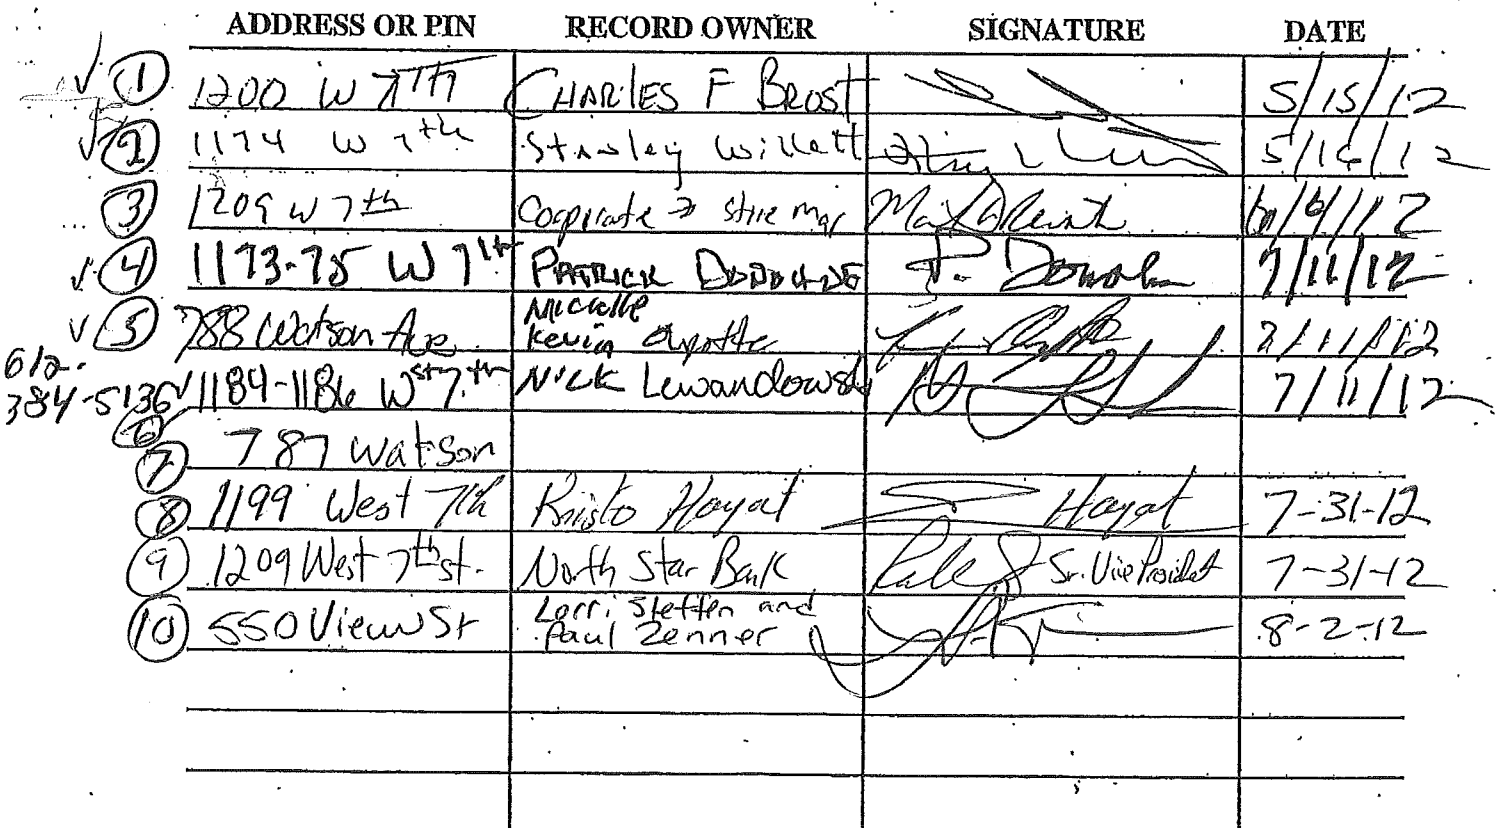 ADDRESS OR PIN RECORD OWNER SIGNATURE DATE
① 1200 W 7TH CHARLES F BROST 5/15/12
② 1174 W 7th Stanley Willett 5/16/12
③ 1209 W 7th Coopirate → store mgr 6/6/12
④ 1173-75 W 7th PATRICK DONOHUE P. Donoh 7/11/12
Michelle
⑤ 788 Watson Ave Kevin 7/11/12
612-
384-5136 1184-1186 W 7th St NICK Lewandowski 7/11/12
⑥
⑦ 787 Watson
⑧ 1199 West 7th Kristo Hayat Hayat 7-31-12
⑨ 1209 West 7th st. North Star Bank Sr. Vice President 7-31-12
Lorri Steffen and
⑩ 550 View St Paul Zenner 8-2-12